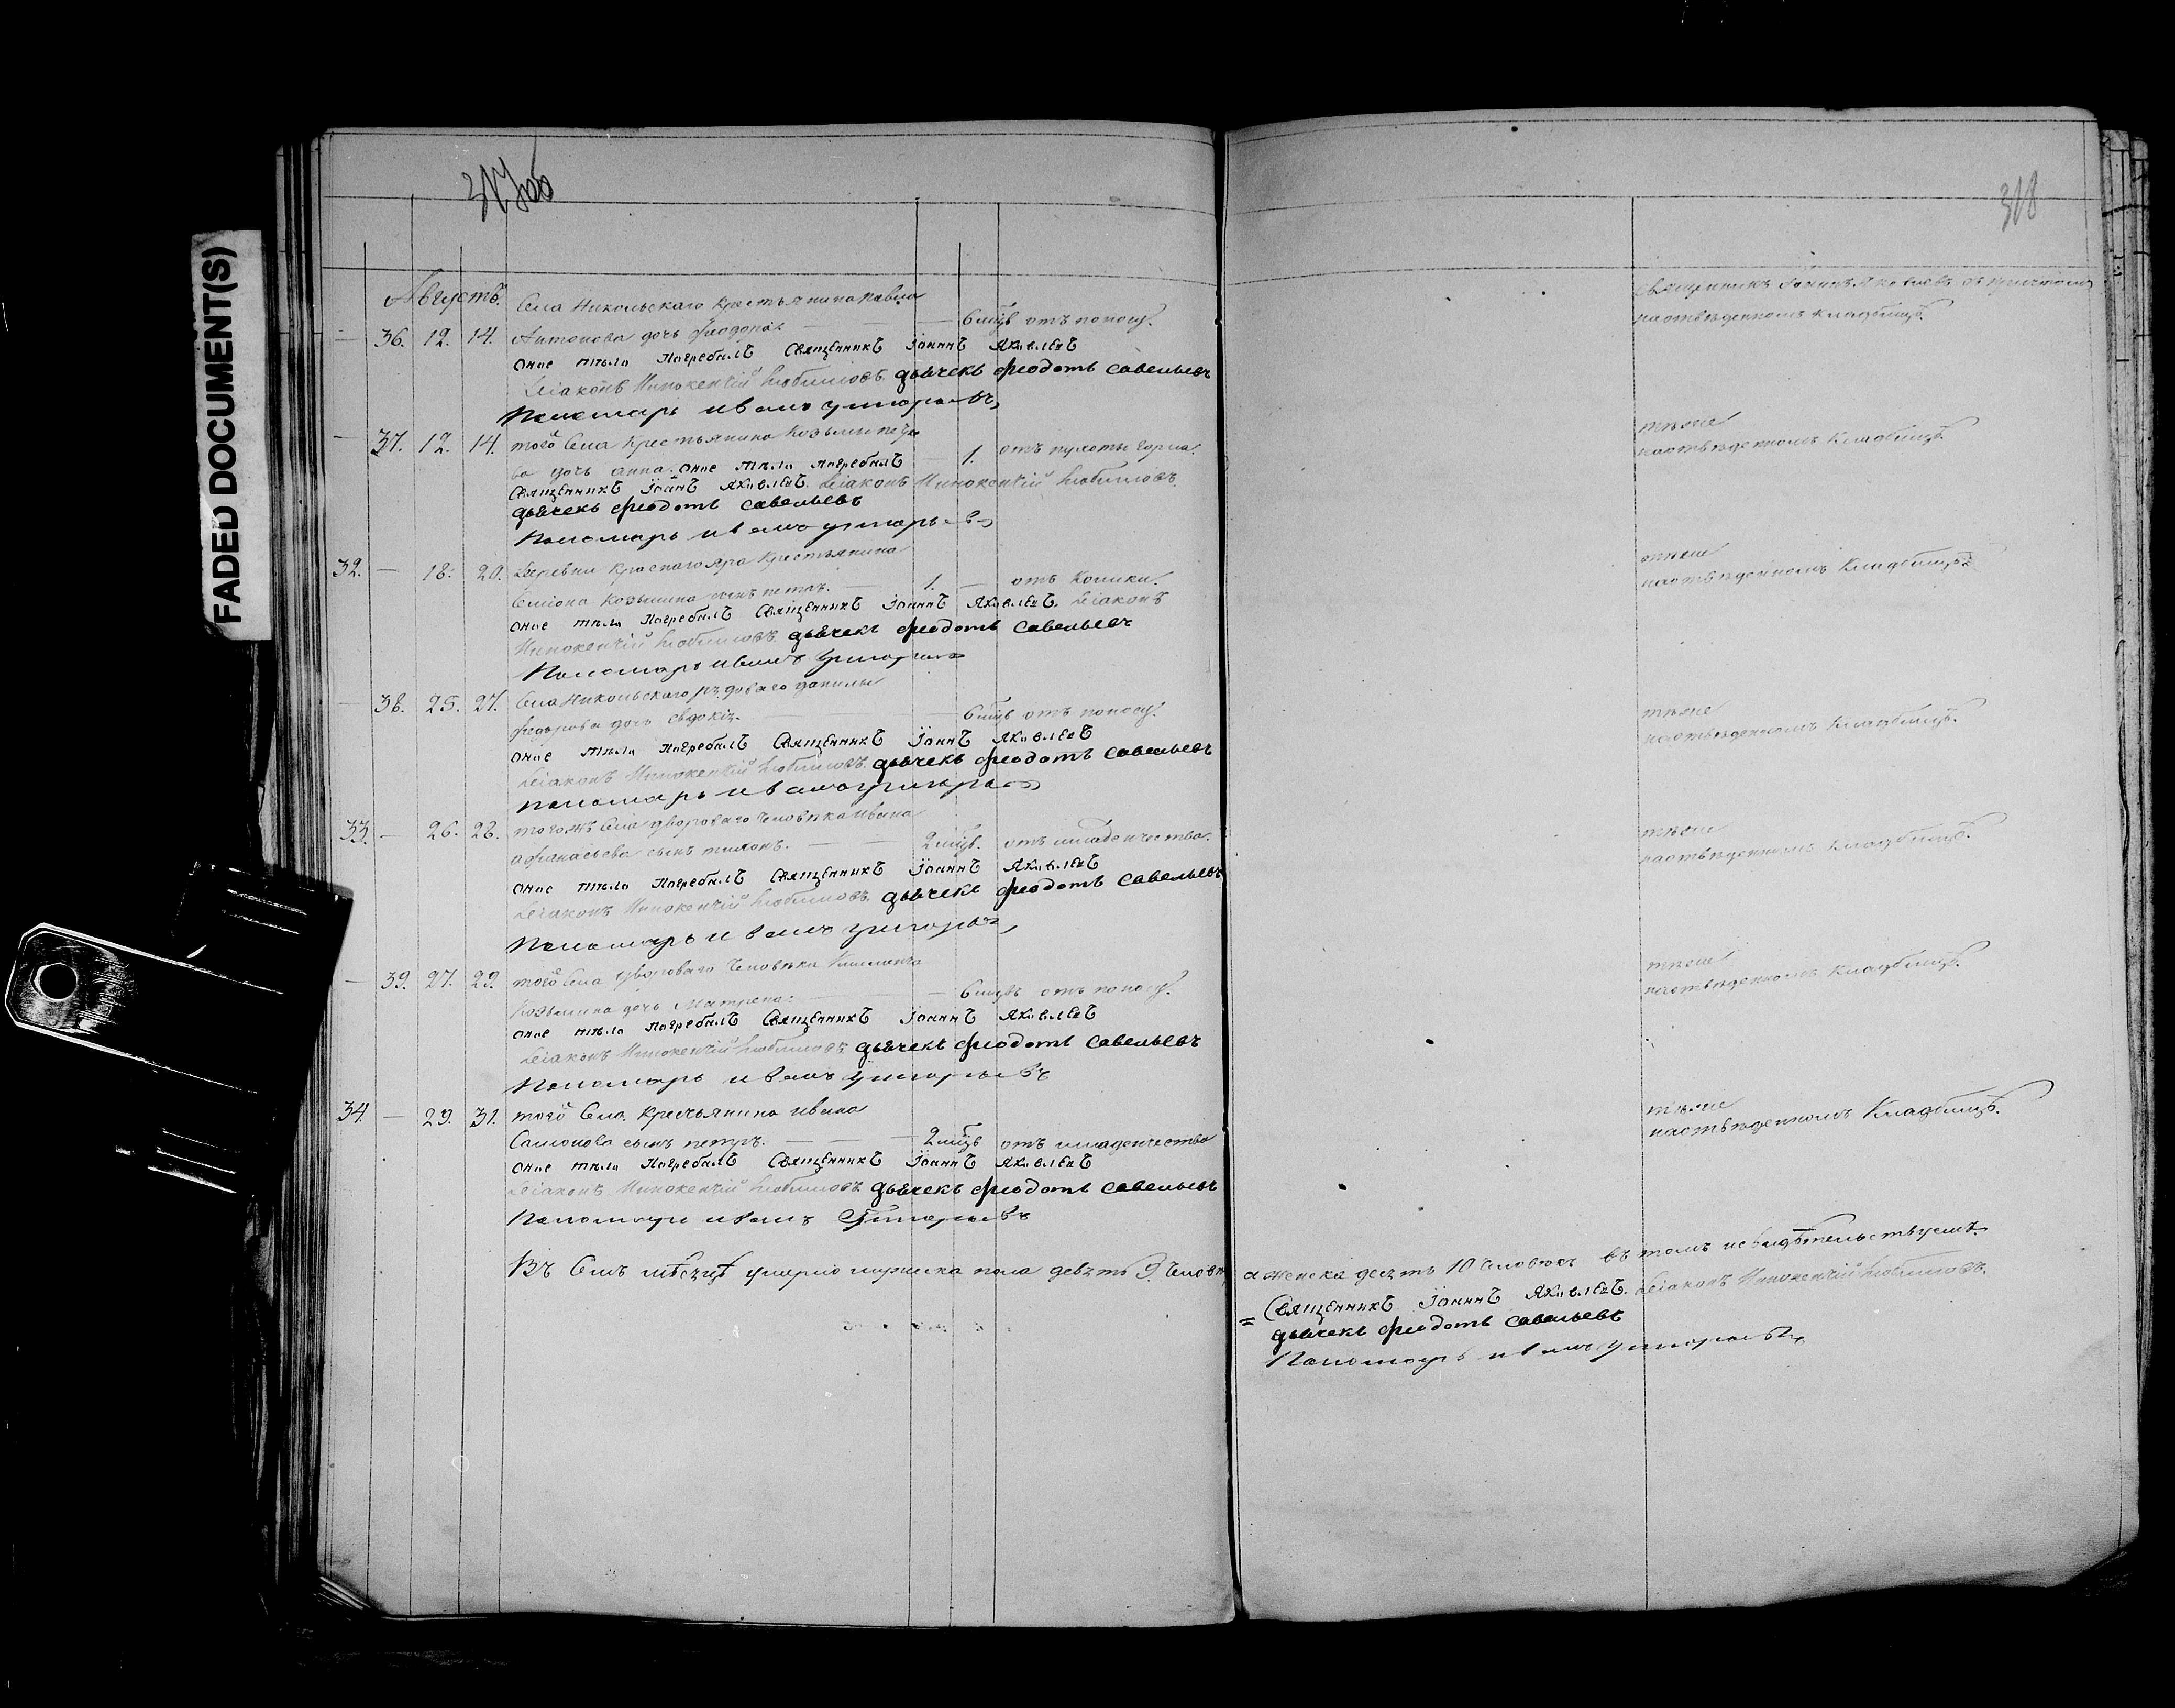 FADED DOCUMENT(S)
317об
318
Августъ.
Села Никольскаго крестьянина Павла
36. 12. 14. Антонова дочь Феодора. 6 мцв отъ поносу.
оное тѣло погребалъ Священникъ Іоаннъ Яковлевъ
Діаконъ Инокентій Любимовъ. дьячекъ Феодотъ Савельевъ
Пономарь Иванъ Григорьевъ
37. 12. 14. того села крестьянина Козьмы
ва дочь Анна. оное тѣло погребалъ 1. отъ
Священникъ Іоаннъ Яковлевъ. Діаконъ Инокентій Любимовъ.
дьячекъ Феодотъ Савельевъ
Пономарь Иванъ Григорьевъ
32. — 18. 20. Деревни Краснаго Яра крестьянина
Симіона Козьмина сынъ Петръ. 1. — отъ колики.
оное тѣло погребалъ Священникъ Іоаннъ Яковлевъ. Діаконъ
Инокентій Любимовъ. дьячекъ Феодотъ Савельевъ
Пономарь Иванъ Григорьевъ
38. 25. 27. Села Никольскаго рядоваго Данилы
дочь Евдокія. 6 мцв отъ поносу.
оное тѣло погребалъ Священникъ Іоаннъ Яковлевъ
Діаконъ Инокентій Любимовъ. дьячекъ Феодотъ Савельевъ
Пономарь Иванъ Григорьевъ
33. — 26. 28. тогожъ села двороваго человѣка Ивана
Афанасьева сынъ Тихонъ. 2 мцв. отъ младенчества.
оное тѣло погребалъ Священникъ Іоаннъ Яковлевъ
Діаконъ Инокентій Любимовъ. дьячекъ Феодотъ Савельевъ
Пономарь Иванъ Григорьевъ
— 39. 27. 29. того села двороваго человѣка
Козьмина дочь Матрена. — 6 мцвъ отъ поносу.
оное тѣло погребалъ Священникъ Іоаннъ Яковлевъ
Діаконъ Инокентій Любимовъ. дьячекъ Феодотъ Савельевъ
Пономарь Иванъ Григорьевъ
34. — 29. 31. того села крестьянина Ивана
Самонова сынъ Петръ. 2 мцв отъ младенчества
оное тѣло погребалъ Священникъ Іоаннъ Яковлевъ
Діаконъ Инокентій Любимовъ. дьячекъ Феодотъ Савельевъ
Пономарь Иванъ Григорьевъ
Въ семъ мѣсяцѣ умерло мужеска пола девять 9. человѣкъ
Священникъ Іоаннъ Яковлевъ съ причтомъ
на отведенномъ кладбищѣ.
тѣже
на отведенномъ кладбищѣ.
тѣже
на отведенномъ кладбищѣ.
тѣже
на отведенномъ кладбищѣ.
тѣже
на отведенномъ кладбищѣ.
тѣже
на отведенномъ кладбищѣ.
тѣже
на отведенномъ кладбищѣ.
а женска десять 10 человекъ въ томъ и свидѣтельствуемъ
Священникъ Іоаннъ Яковлевъ. Діаконъ Инокентій Любимовъ.
дьячекъ Феодотъ Савельевъ
Пономарь Иванъ Григорьевъ